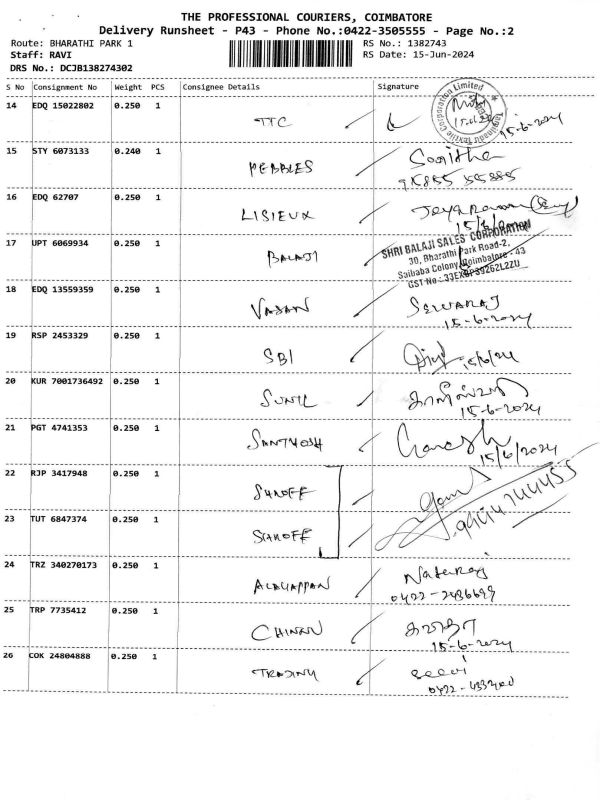 THE PROFESSIONAL COURIERS, COIMBATORE
Delivery Runsheet - P43 - Phone No.:0422-3505555 - Page No.:2
Route: BHARATHI PARK 1 RS No.: 1382743
Staff: RAVI RS Date: 15-Jun-2024
DRS No.: DCJB138274302
S No Consignment No Weight PCS Consignee Details Signature
14 EDQ 15022802 0.250 1 TTC 15-6-2024
Tamilnadu Textile Corporation Limited
15 STY 6073133 0.240 1 PEBBLES
16 EDQ 62707 0.250 1 LISIEUX Jeyaraman
15/6/2024
17 UPT 6069934 0.250 1 BALAJI
SHRI BALAJI SALES CORPORATION
30, Bharathi Park Road-2,
Saibaba Colony, Coimbatore - 43
18 EDQ 13559359 0.250 1 VASAN SELVARAJ
15-6-2024
19 RSP 2453329 0.250 1 SBI 15/6/24
20 KUR 7001736492 0.250 1 SUNIL
15-6-2024
21 PGT 4741353 0.250 1 SANTHOSH Ganesh
15/6/2024
22 RJP 3417948 0.250 1 SHROFF
23 TUT 6847374 0.250 1 SHROFF
24 TRZ 340270173 0.250 1 ALAGAPPAN Nataraj
0422-2436699
25 TRP 7735412 0.250 1 CHINAN
15-6-2024
26 COK 24804888 0.250 1 TRADING Selvi